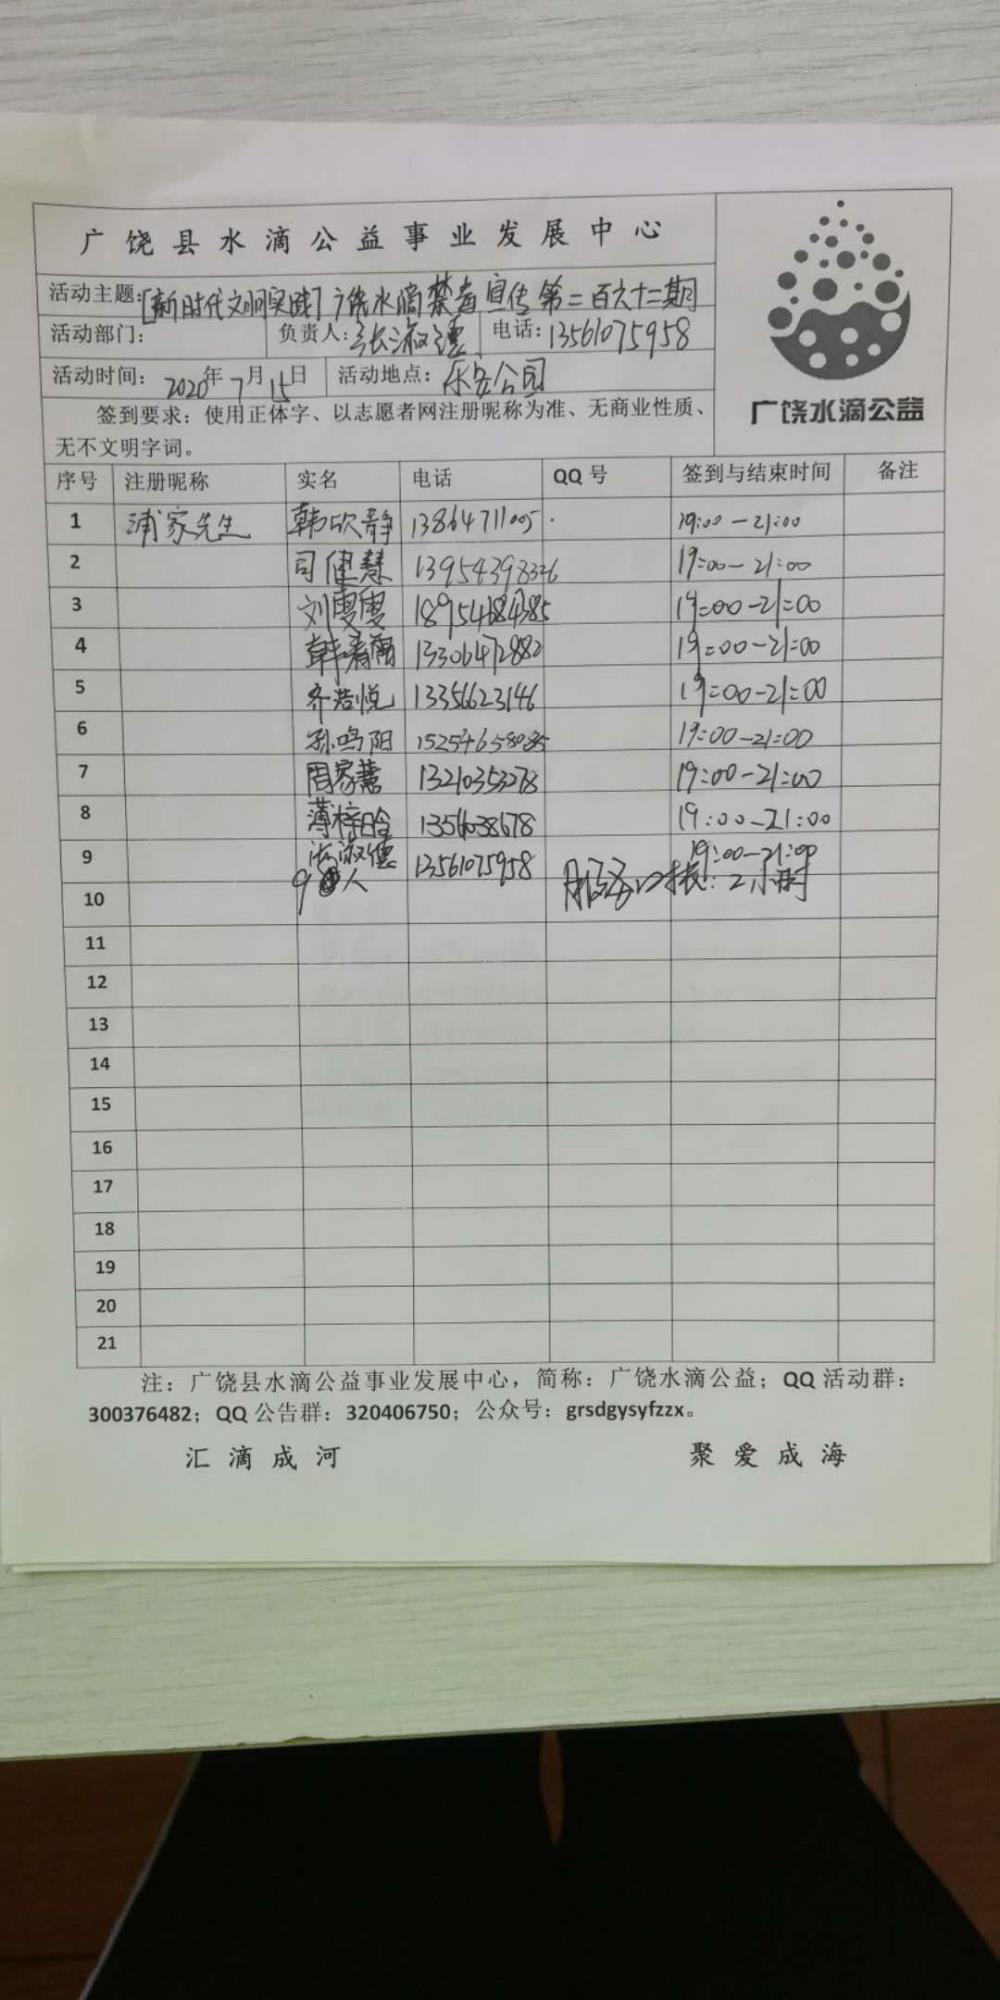 广饶县水滴公益事业发展中心
活动主题:[新时代文明实践]广饶水滴禁毒宣传第二百六十二期
活动部门: 负责人:张淑德 电话:13561075958
活动时间: 2020年7月15日 活动地点:乐安公园
签到要求：使用正体字、以志愿者网注册昵称为准、无商业性质、
无不文明字词。
广饶水滴公益
序号 注册昵称 实名 电话 QQ号 签到与结束时间 备注
1 浦家先生 韩欣静 13864711005 19:00-21:00
2 司健慧 13954398326 19:00-21:00
3 刘雯雯 18954684385 19:00-21:00
4 13306472882 19:00-21:00
5 齐浩悦 13356623146 19:00-21:00
6 孙鸣阳 15254658085 19:00-21:00
7 周家慧 13210353278 19:00-21:00
8 薄梓晗 19:00-21:00
9 张淑德 13561075958 19:00-21:00
9人 服务时长:2小时
10
11
12
13
14
15
16
17
18
19
20
21
注：广饶县水滴公益事业发展中心，简称：广饶水滴公益；QQ活动群：
300376482；QQ公告群：320406750；公众号：grsdgysyfzzx。
汇滴成河 聚爱成海